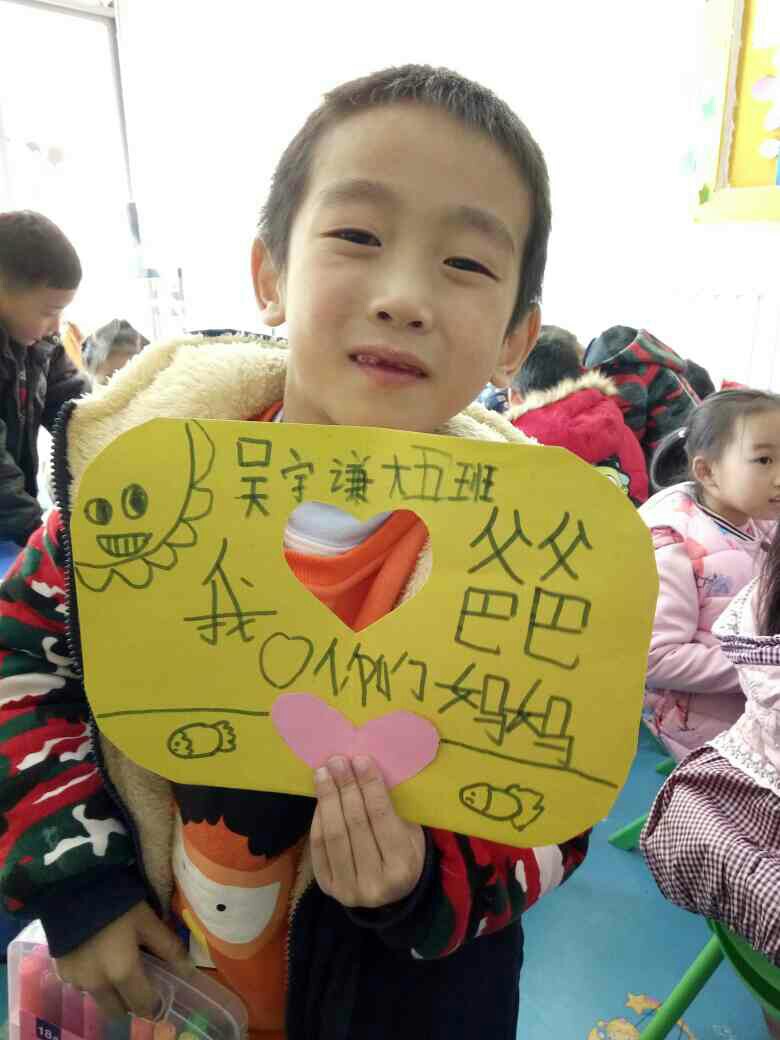 吴宇谦大五班
我 爸爸
♡你们妈妈
18